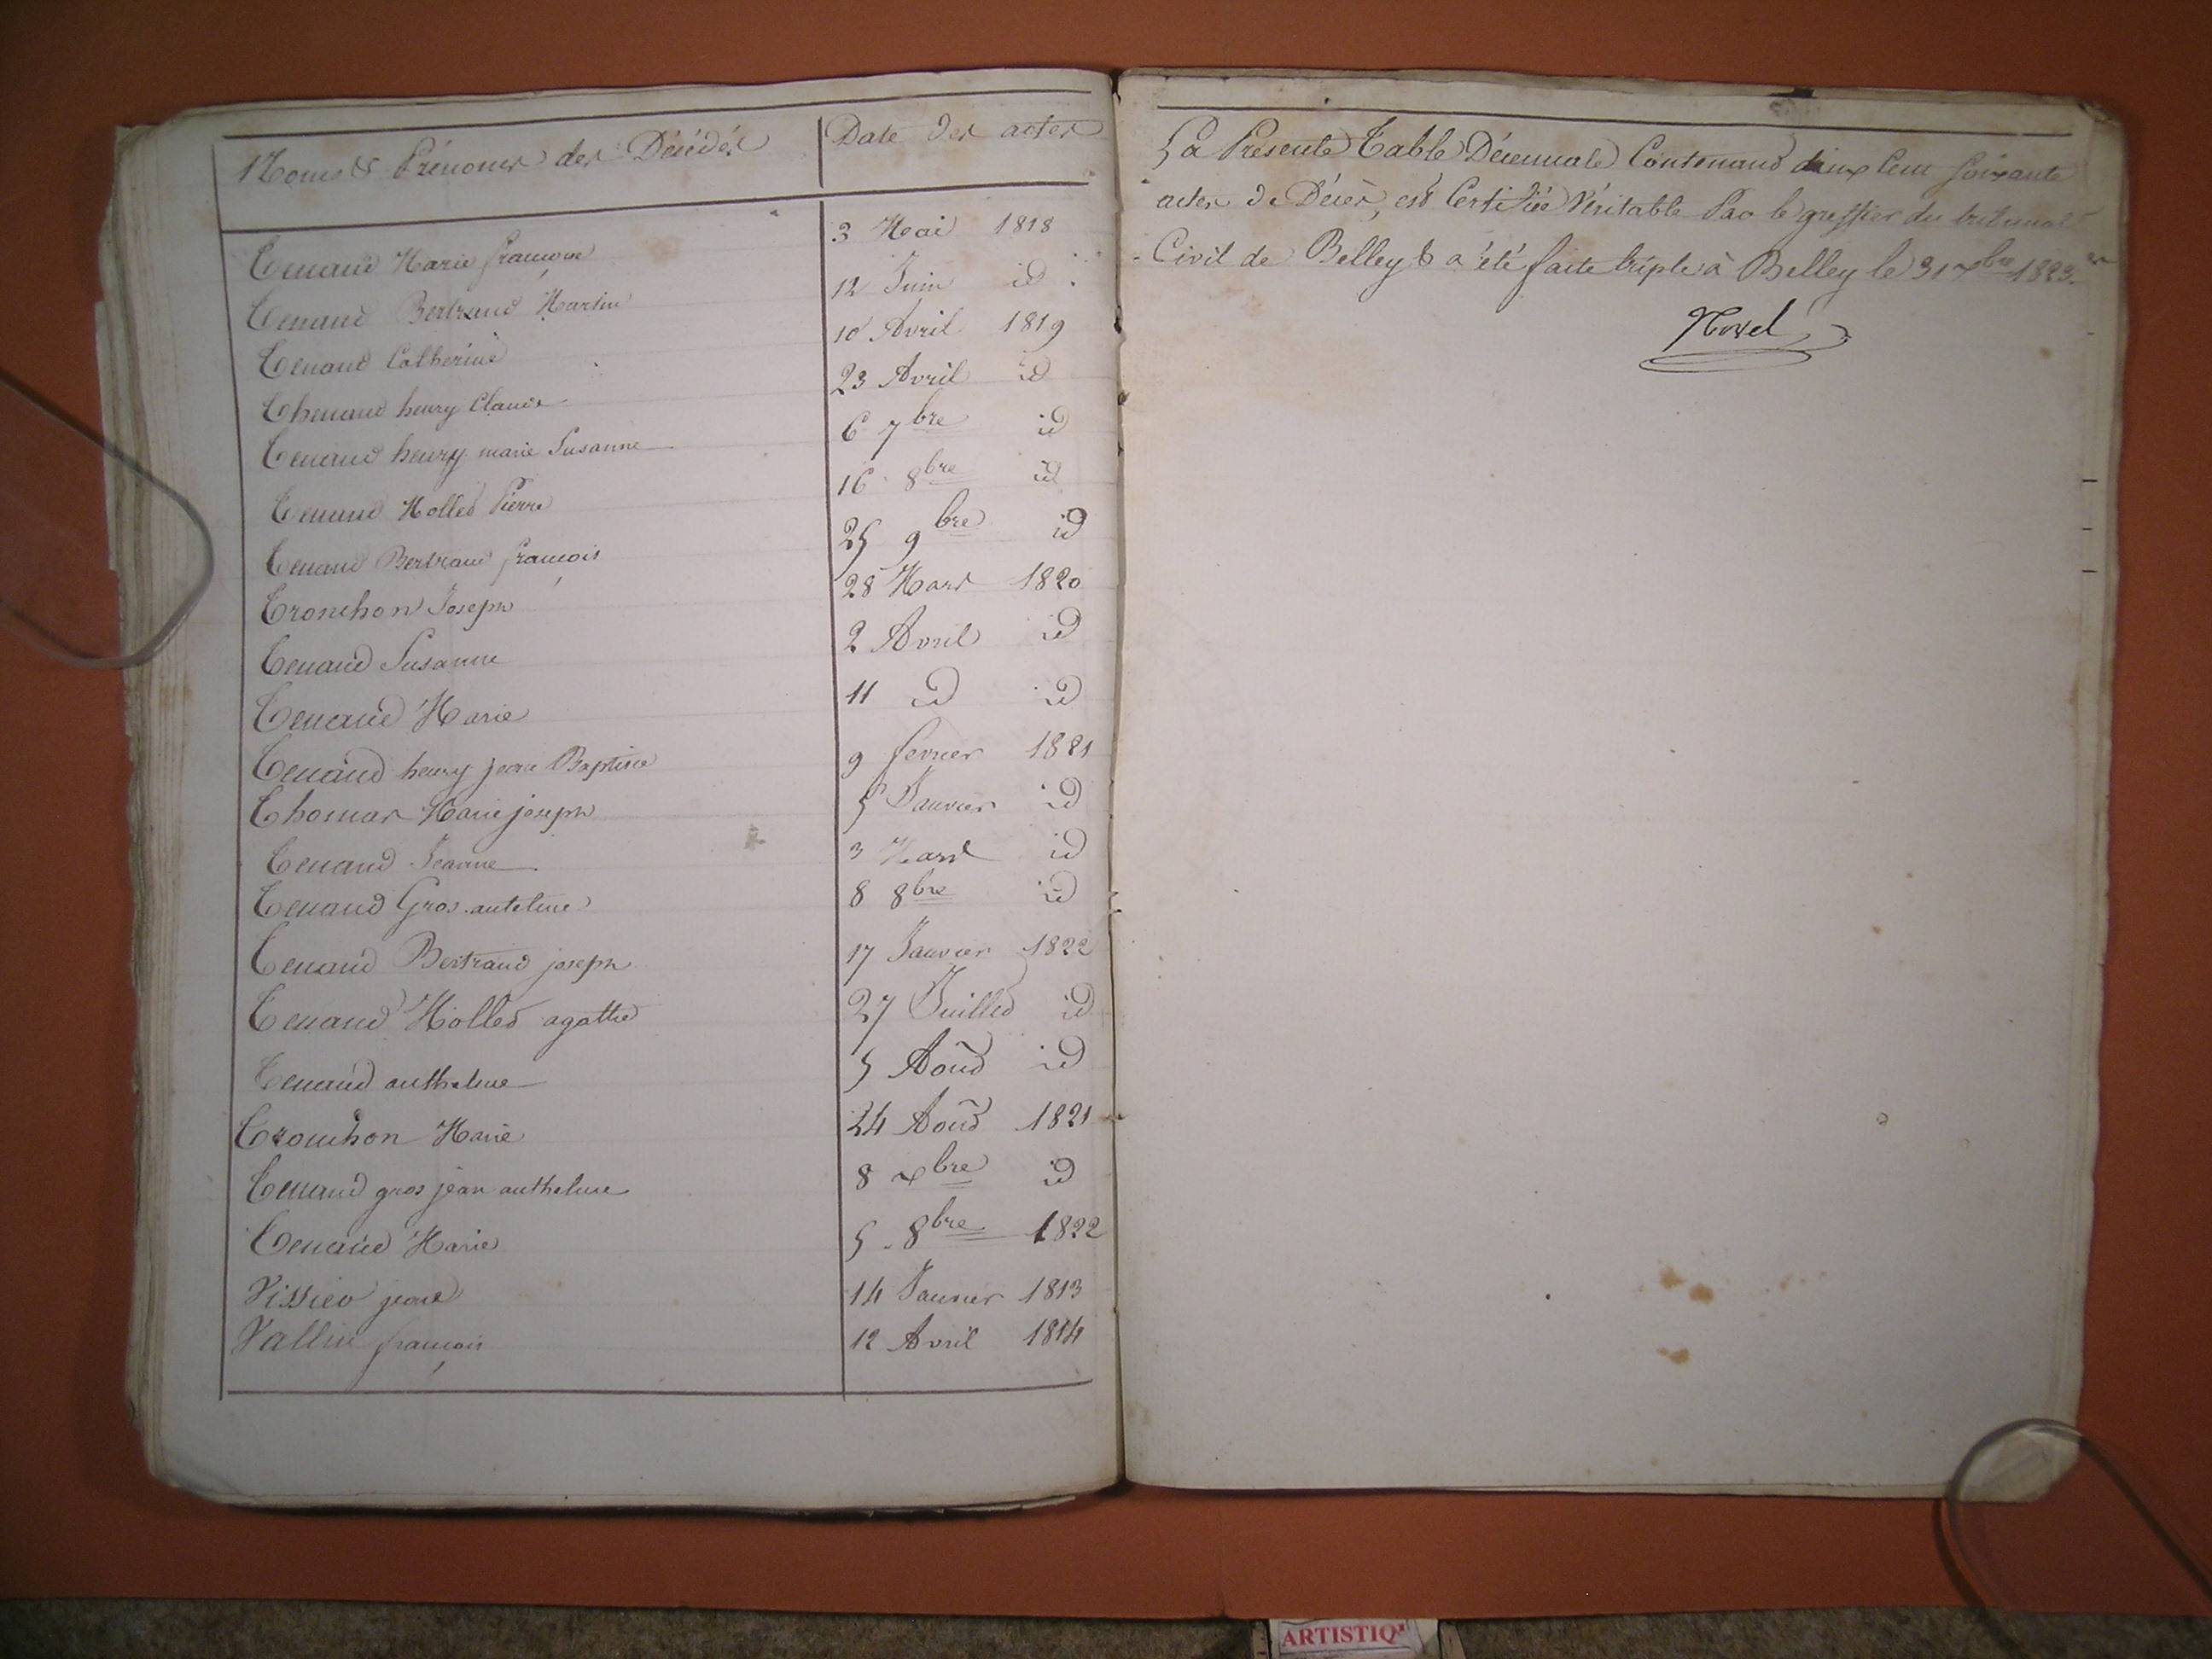 Noms & Prénoms des Décédés Date des actes
Tenand Marie françoise 3 Mai 1818
Tenand Bertrand Martin 12 Juin id
Tenand Catherine 10 Avril 1819
Thenand henry Claude 23 Avril id
Tenand henry marie Susanne 6 7bre id
Tenand Mollet Pierre 16 8bre id
Tenand Bertrand françois 25 9bre id
Tronchon Joseph 28 Mars 1820
Tenand Susanne 2 Avril id
Tenand Marie 11 id id
Tenand henry jean Baptiste 9 fevrier 1821
Thomas Marie joseph 5 Janvier id
Tenand Jeanne 3 Mars id
Tenand Gros antelme 8 8bre id
Tenand Bertrand joseph 17 Janvier 1822
Tenand Mollet agathe 27 Juillet id
Tenand anthelme 5 Août id
Tronchon Marie 24 Août 1821
Tenand gros jean anthelme 8 xbre id
Tenand Marie 5 8bre 1822
jean 14 Janvier 1813
Vallin françois 12 Avril 1814
La Présente Table Décennale Contenant deux Cent soixante
actes de Décès, est Certifiée Véritable Par le greffier du tribunal
Civil de Belley & a été faite triple à Belley le 31 xbre 1823.
ARTISTIQ